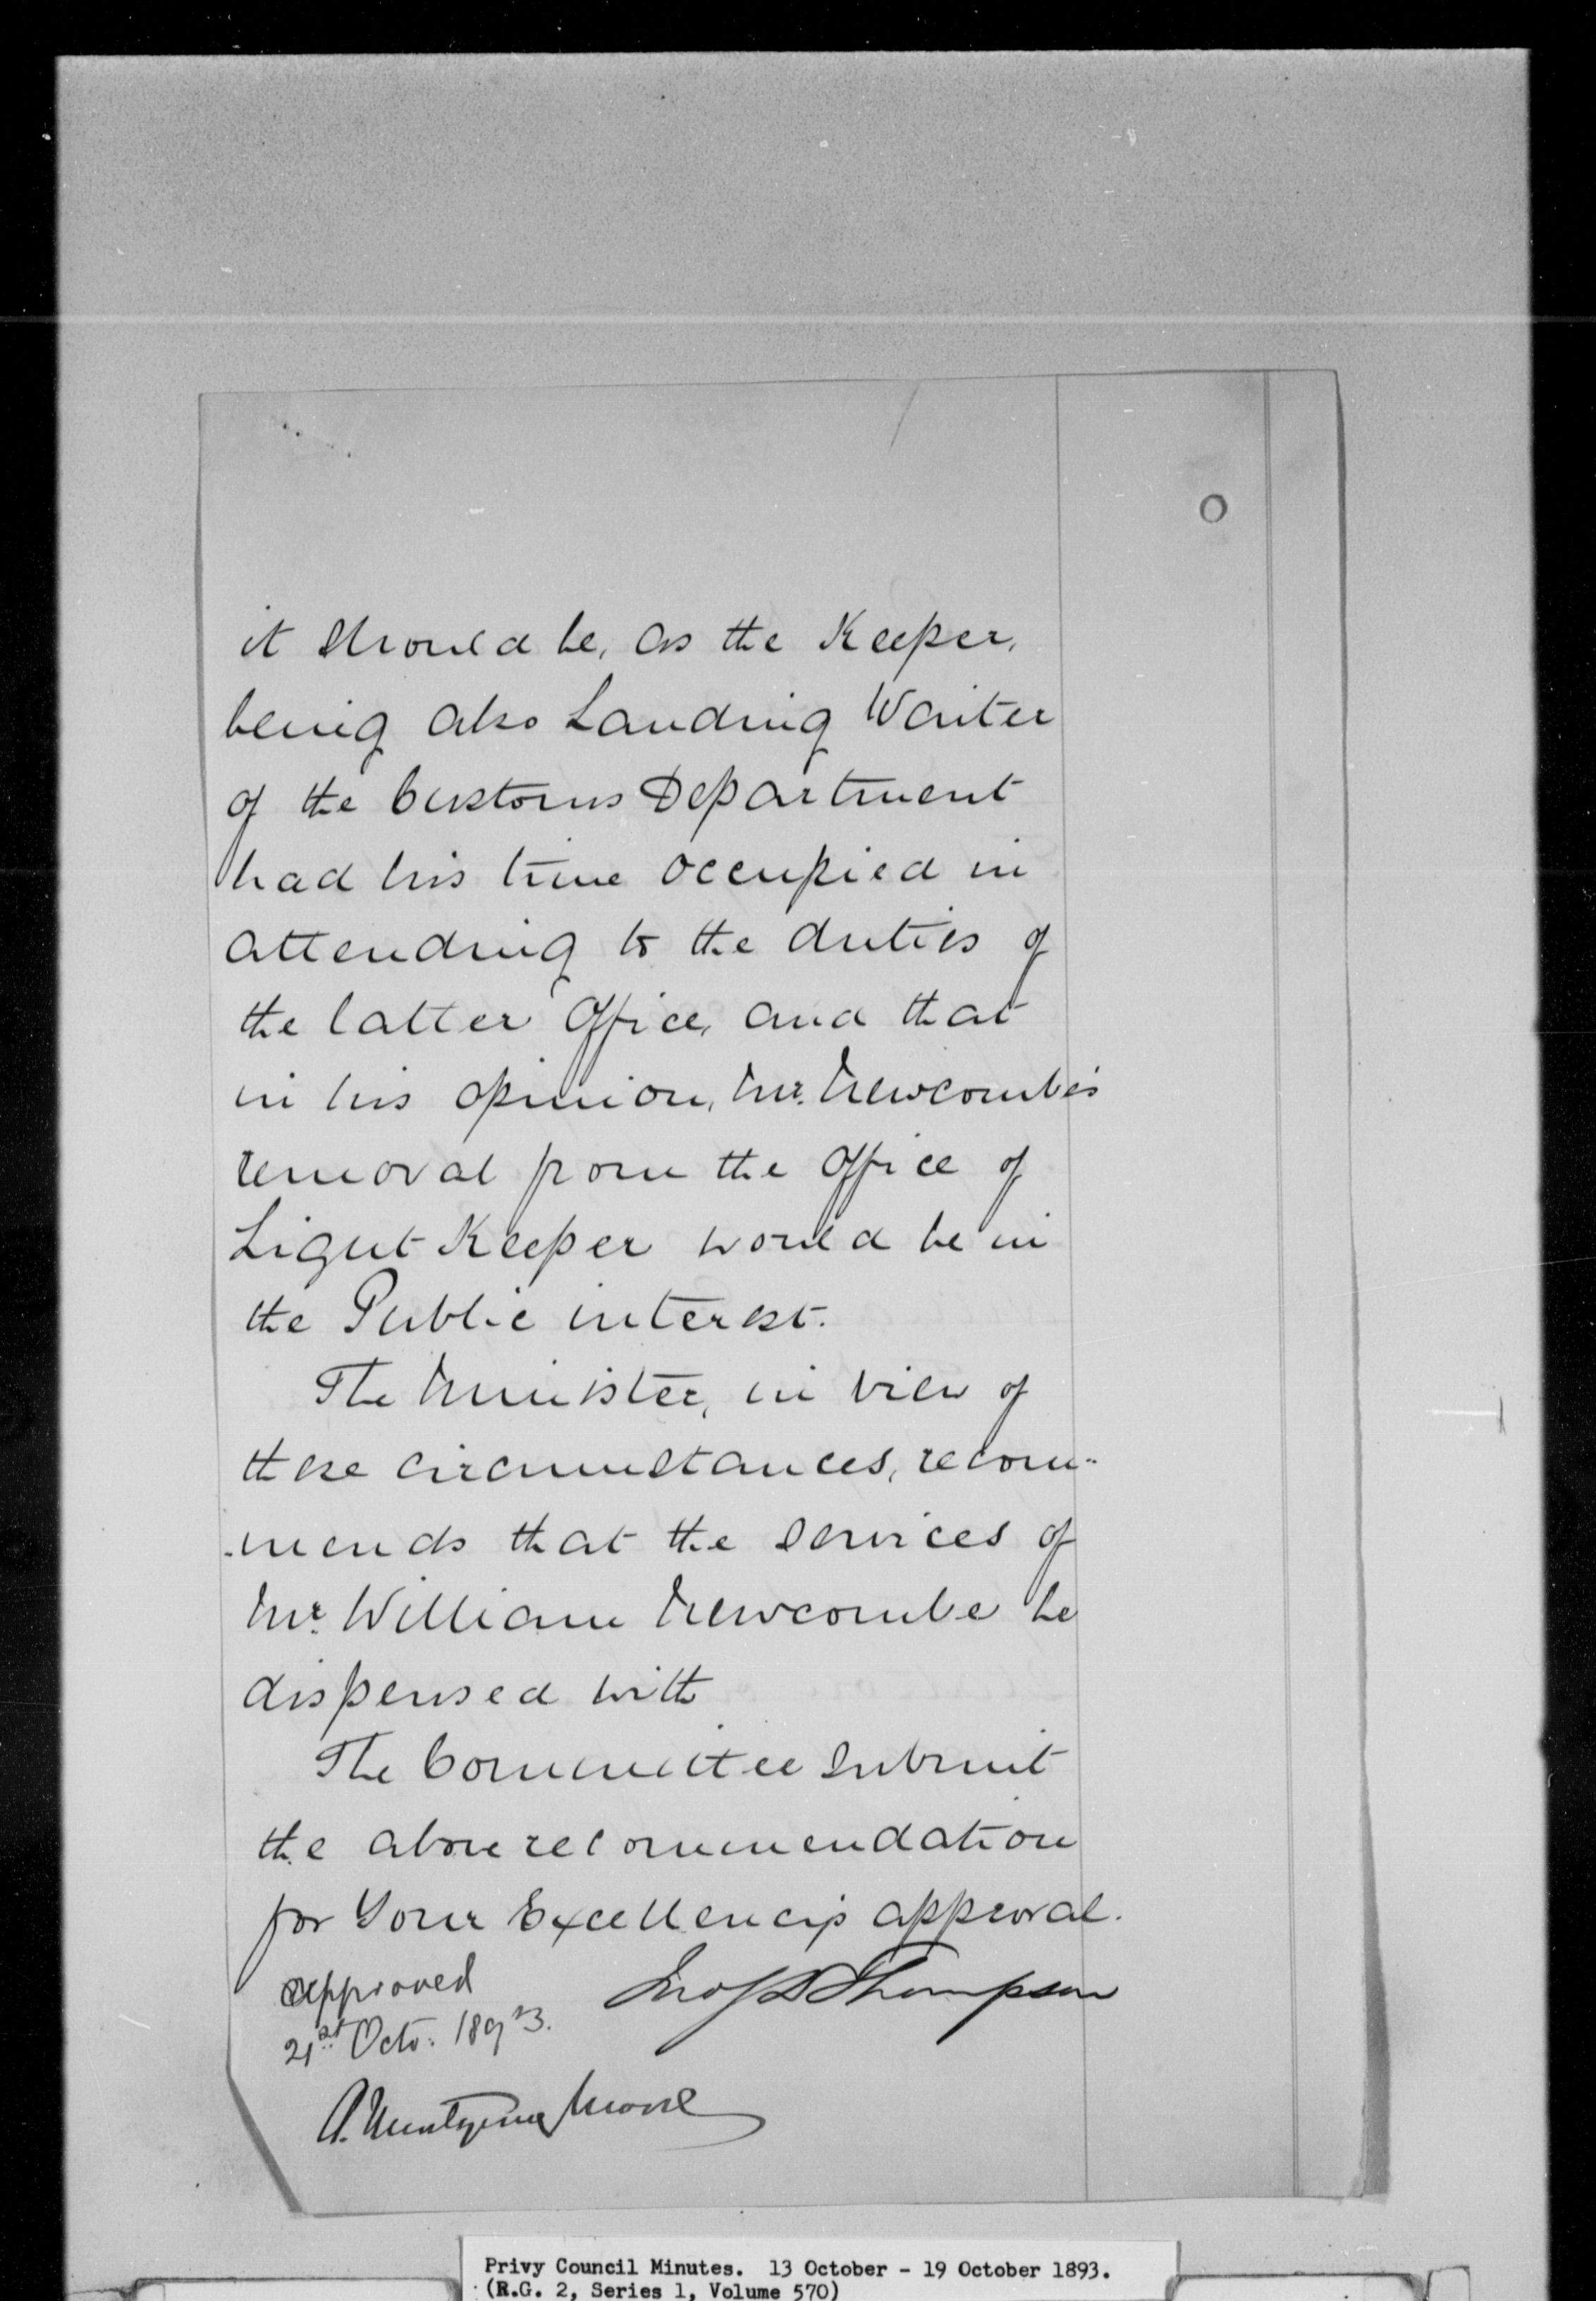 it should be, as the Keeper,
being also Landing Waiter
of the Customs Department
had his time occupied in
attending to the duties of
the latter Office, and that
in his opinion, Mr. Newcombe's
removal from the Office of
Light Keeper would be in
the Public interest.
The Minister, in view of
these circumstances, recom-
-mends that the services of
Mr. William Newcombe be
dispensed with
The Committee submit
the above recommendation
for Your Excellency's approval.
approved
Jno S D Thompson
21st Octo: 1893.
A. Montgomery Moore
Privy Council Minutes. 13 October - 19 October 1893.
(R.G. 2, Series 1, Volume 570)